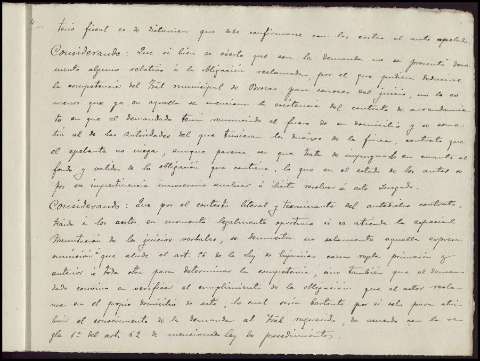 terio fiscal es de dictamen que sea confirmado con las costas el auto apelado.
Considerando: Que si bien es cierto que con la demanda no se presentó docu
mento alguno relativo á la obligación reclamada, por el que pudiera deducirse
la competencia del Tral municipal de para conocer del juicio, no lo es
menos que ya en aquella se menciona la existencia del contrato de arrendamien
to en que el demandado tenia renunciado el fuero de su domicilio y se some
tió al de las Autoridades del que tuvieran los dueños de la finca, contrato que
el apelante no niega, aunque parece se que trata de impugnarlo en cuanto al
fondo y validez de la obligación que contiene, lo que en el estado de los autos se
por su impertinencia innecesario analizar á éste Juzgado.
Considerando: Que por el contexto literal y terminante del antedicho contrato,
traido á los autos en momento legalmente oportuno si se atiende la especial
tramitación de los juicios verbales, se demuestra no solamente aquella expresa
sumisión á que alude el art. 56 de la ley de Enjuiciar como regla primaria y
anterior á toda otra para determinar la competencia, sino también que el deman
dado convino en verificar el cumplimiento de la obligación que el actor recla
ma en el propio domicilio de este, lo cual seria bastante por si solo para atri
buir el conocimiento de la demanda al Tral requerido, de acuerdo con la re
gla 1ª del art. 62 de mencionada ley de procedimientos.